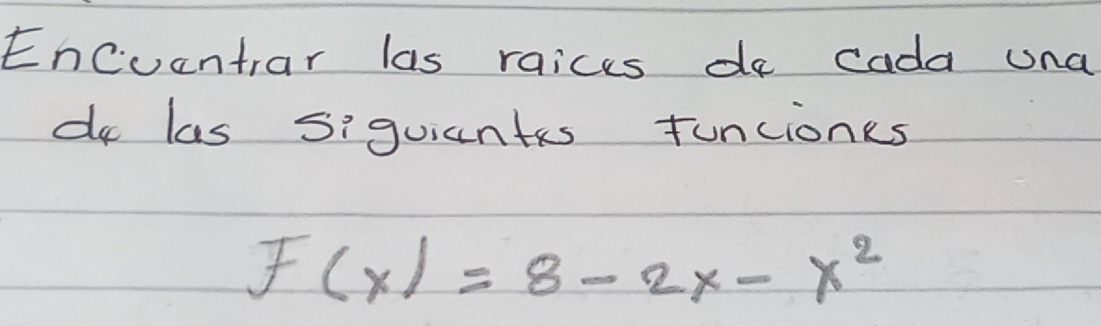 Encuentrar las raices de cada una
de las siguientes Funciones
F(x) = 8 - 2x - x²